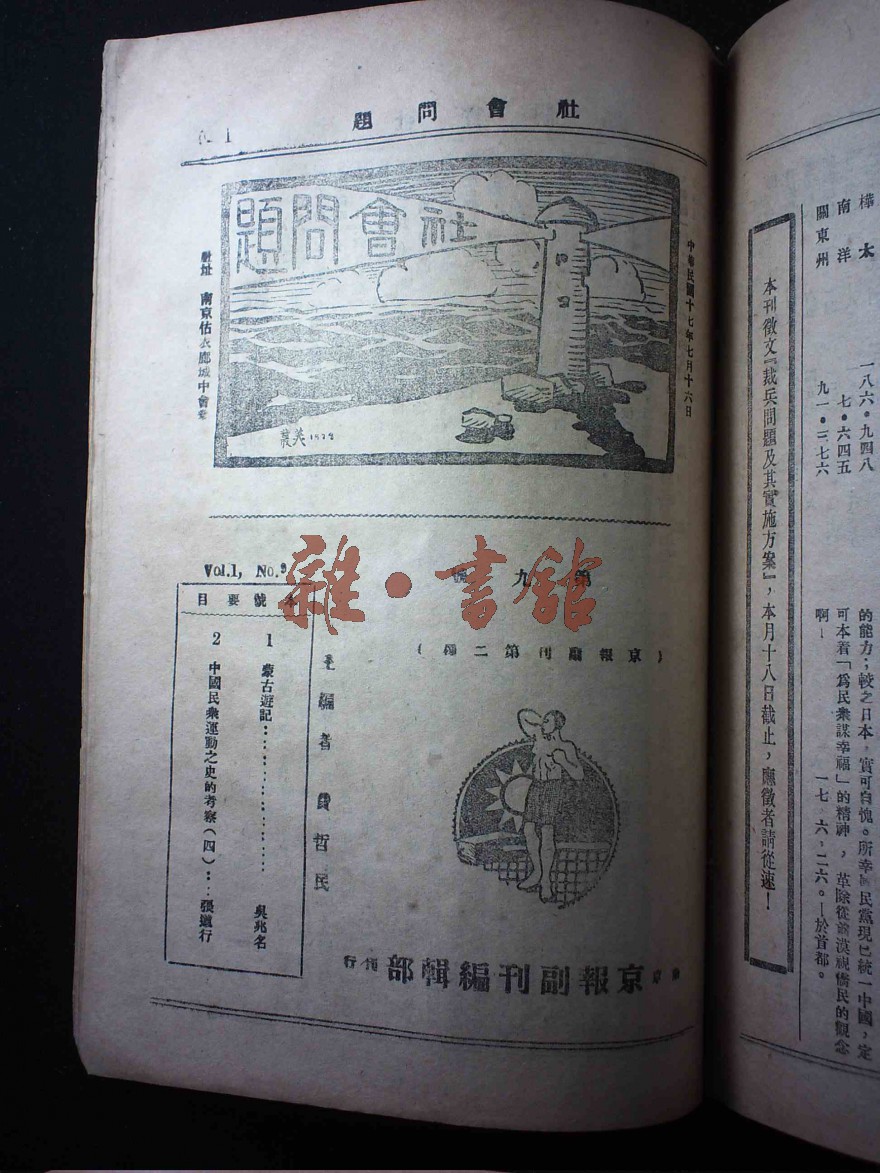 社會問題
社會問題
中華民國十七年七月十六日
社址 南京估衣廊城中會堂
農英 1928
第九號
Vol.1, No.9
（京報副刊第二種）
主編者 民哲
本號要目
1 蒙古遊記 吳兆名
2 中國民衆運動之史的考察（四） 張道行
京報副刊編輯部 行
雜·書館
樺太 一八六·九四八
南洋 七·六四五
關東州 九一·二七六
本刊徵文『裁兵問題及其實施方案』，本月十八日截止，應徵者請從速！
的能力；較之日本，實可自愧。所幸 民黨現已統一中國，定
可本着「爲民衆謀幸福」的精神，革除從前漠視僑民的觀念
啊！ 一七，六，二六。—於首都。